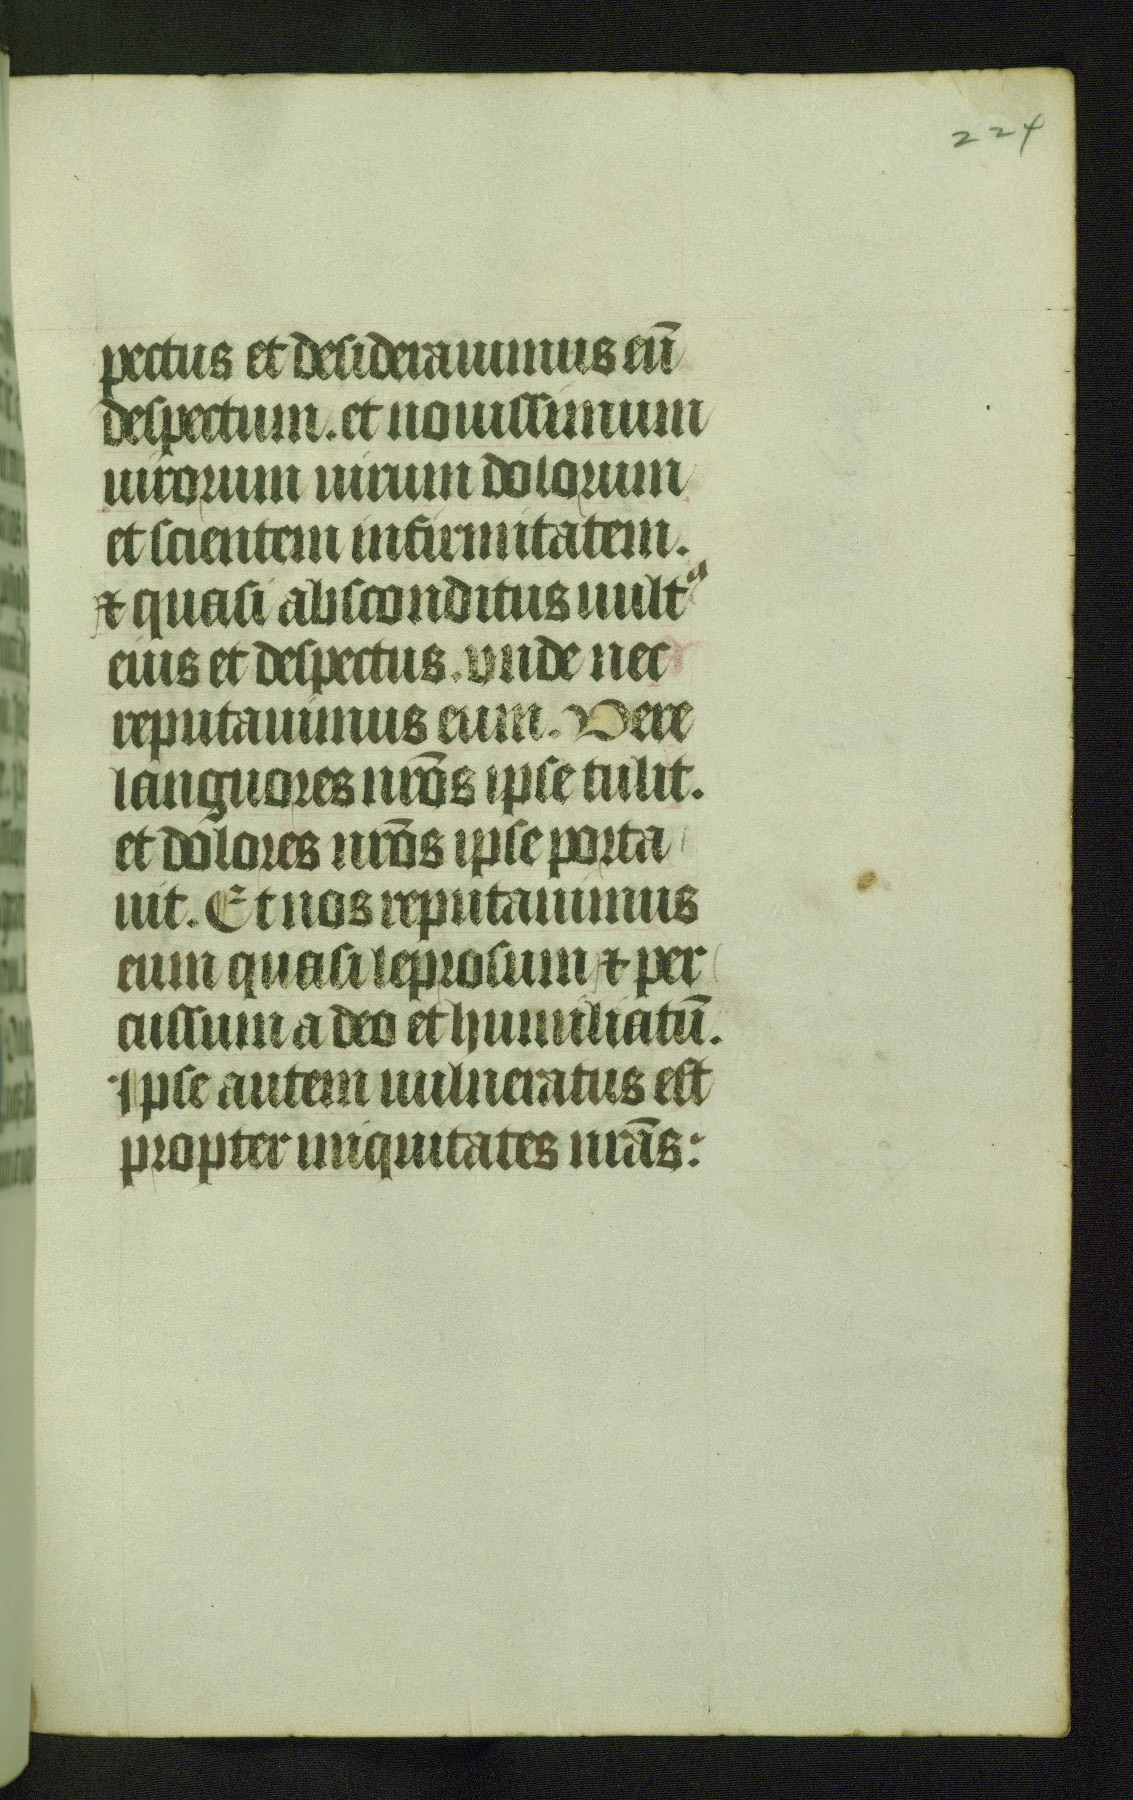 224
pectus et desiderauimus eū
despectum. et nouissimum
uirorum uirum dolorum
et scientem infirmitatem.
⁊ quasi absconditus uultꝰ
eius et despectus. vnde nec
reputauimus eum. Vere
languores nr̄os ipse tulit.
et dolores nr̄os ipse porta
uit. Et nos reputauimus
eum quasi leprosum ⁊ per
cussum a deo et humiliatū.
Ipse autem uulneratus est
propter iniquitates nr̄as: